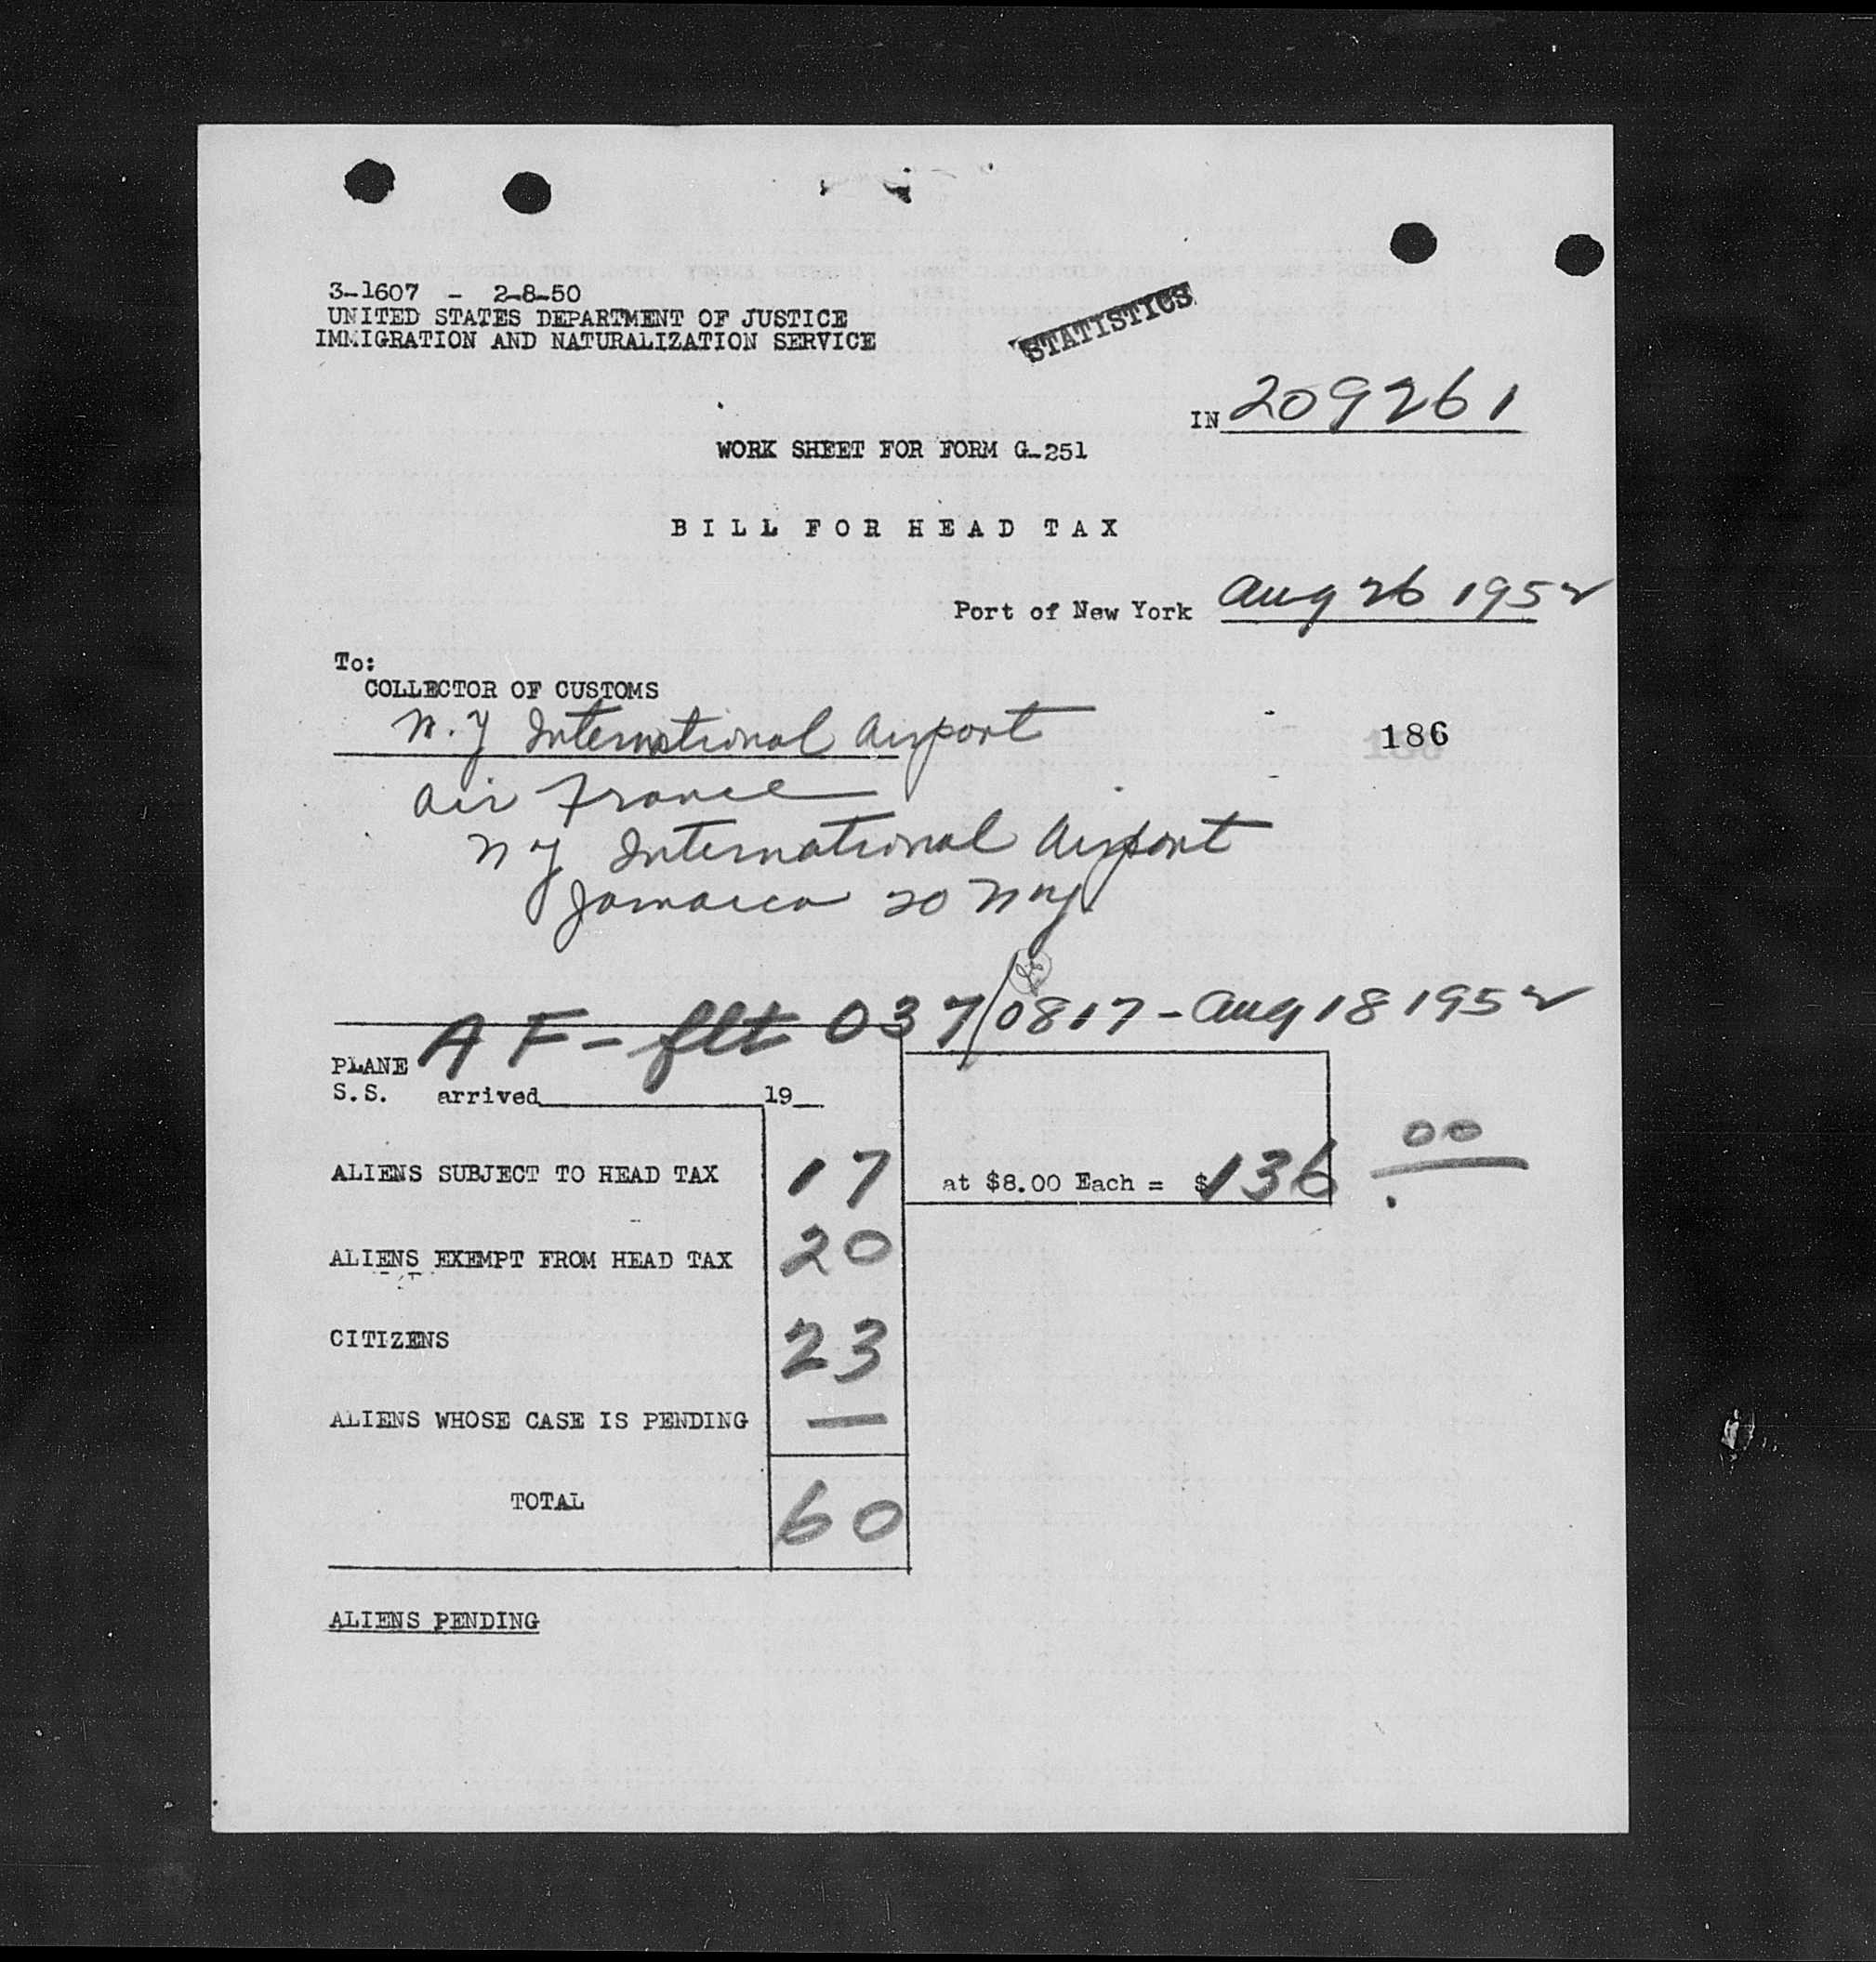 3-1607 - 2-8-50
UNITED STATES DEPARTMENT OF JUSTICE
IMMIGRATION AND NATURALIZATION SERVICE
STATISTICS
IN 209261
WORK SHEET FOR FORM G-251
BILL FOR HEAD TAX
Port of New York Aug 26 1952
To:
COLLECTOR OF CUSTOMS
N.Y International Airport
186
Air France
NY International Airport
Jamaica 20 NY
AF - flt 037/0817 - Aug 18 1952
PLANE
S.S. arrived 19
ALIENS SUBJECT TO HEAD TAX 17 at $8.00 Each = $136.00
ALIENS EXEMPT FROM HEAD TAX 20
CITIZENS 23
ALIENS WHOSE CASE IS PENDING —
TOTAL 60
ALIENS PENDING